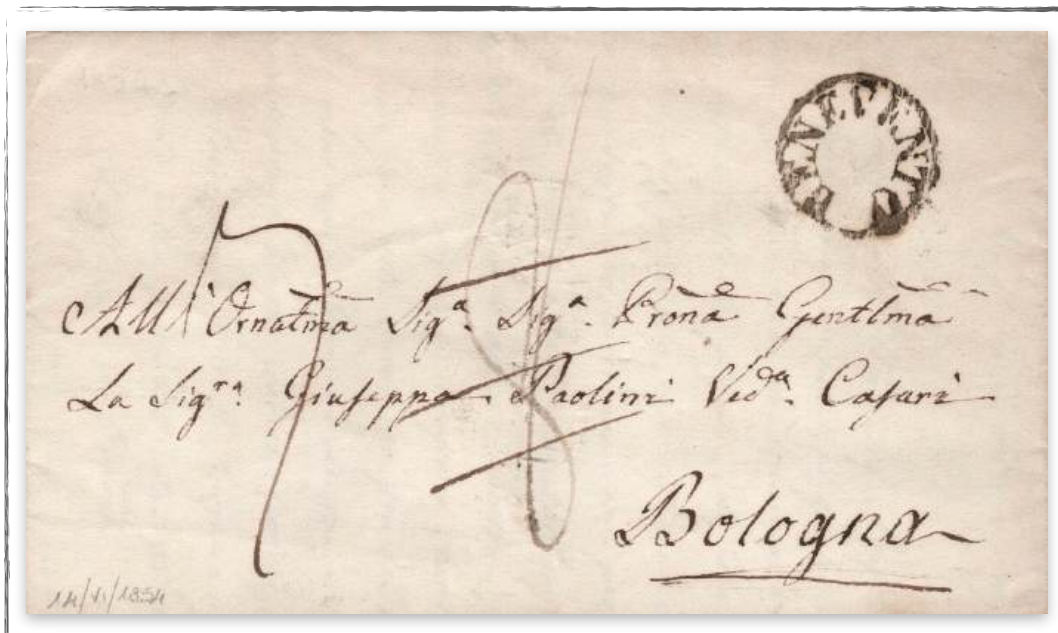 BENEVENTO
7 8
All' Ornatma Sigª. Sigª. Prona Gentlma
La Sigrª. Giuseppa Paolini Vedª. Casari
Bologna
14/VI/1854